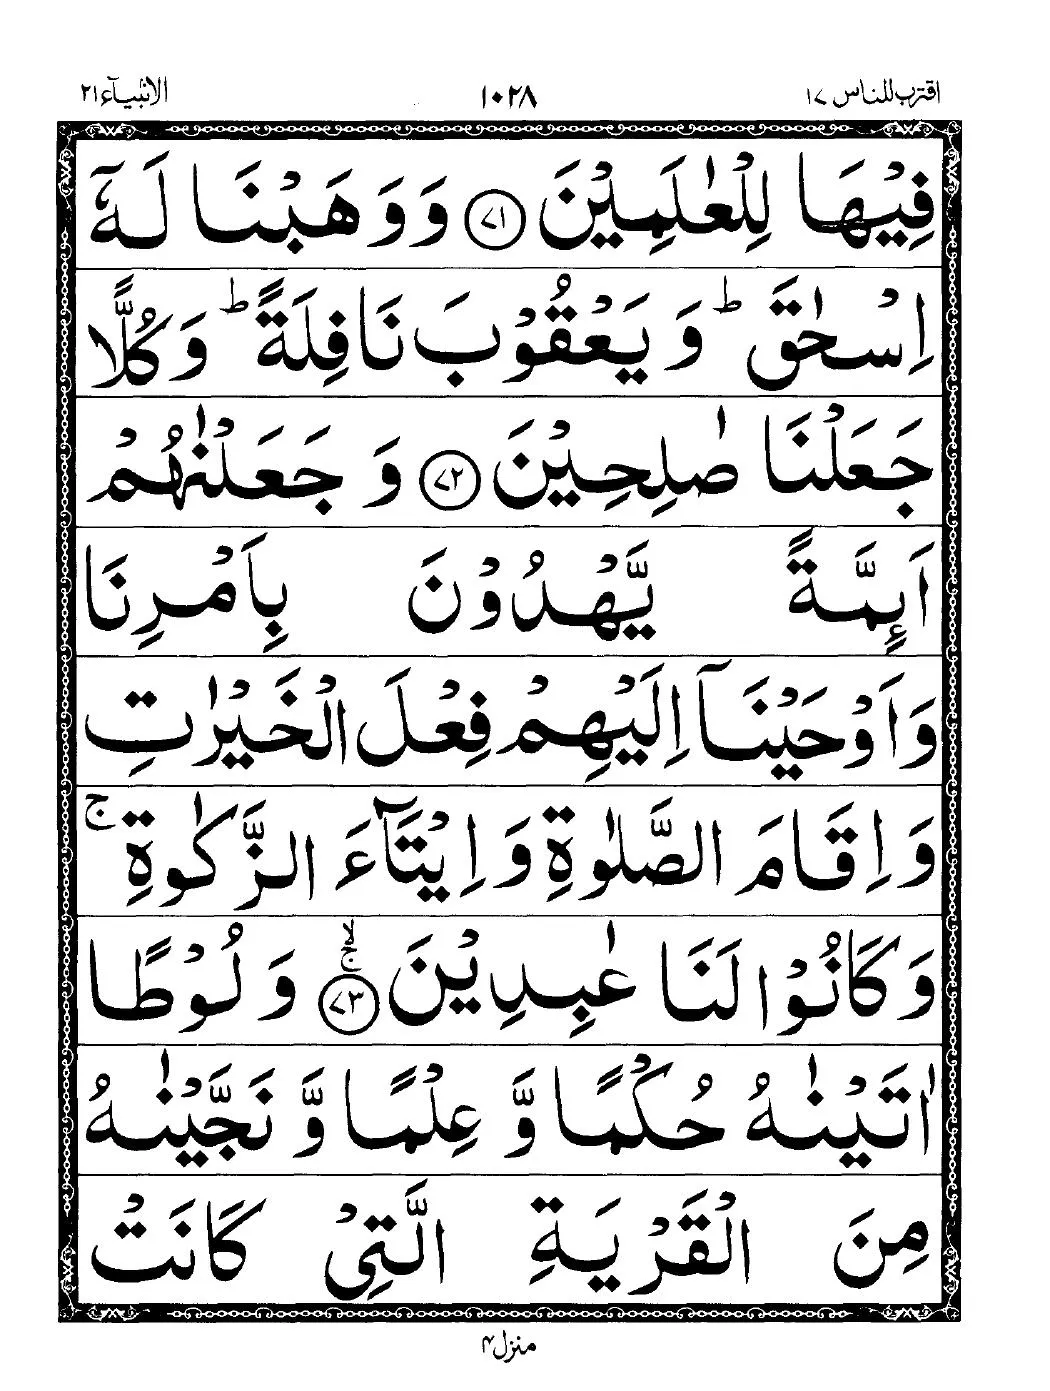 اقترب للناس ١٧ ١٠٢٨ الانبیآء ٢١
فِیْهَا لِلْعٰلَمِیْنَ ﴿٧١﴾ وَ وَهَبْنَا لَهٗۤ
اِسْحٰقَ ؕ وَ یَعْقُوْبَ نَافِلَةً ؕ وَ كُلًّا
جَعَلْنَا صٰلِحِیْنَ ﴿٧٢﴾ وَ جَعَلْنٰهُمْ
اَىِٕمَّةً یَّهْدُوْنَ بِاَمْرِنَا
وَ اَوْحَیْنَاۤ اِلَیْهِمْ فِعْلَ الْخَیْرٰتِ
وَ اِقَامَ الصَّلٰوةِ وَ اِیْتَآءَ الزَّكٰوةِ ۚ
وَ كَانُوْا لَنَا عٰبِدِیْنَ ﴿٧٣﴾ۚۙ وَ لُوْطًا
اٰتَیْنٰهُ حُكْمًا وَّ عِلْمًا وَّ نَجَّیْنٰهُ
مِنَ الْقَرْیَةِ الَّتِیْ كَانَتْ
منزل ۴